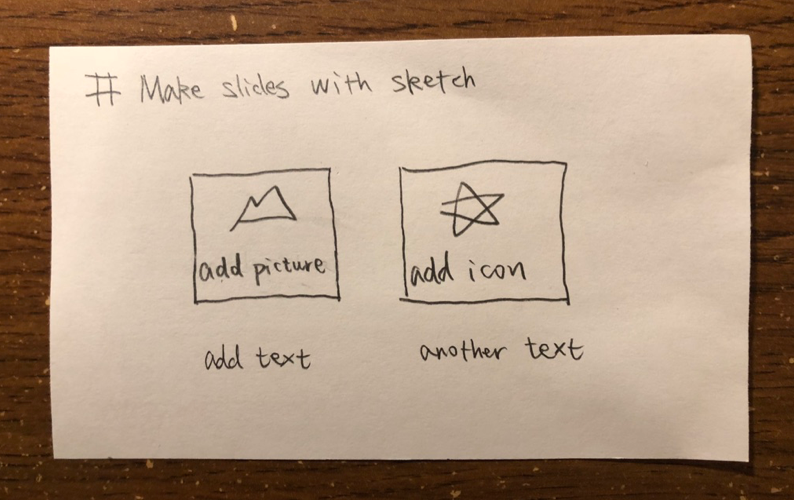 # Make slides with sketch
add picture
add icon
add text
another text